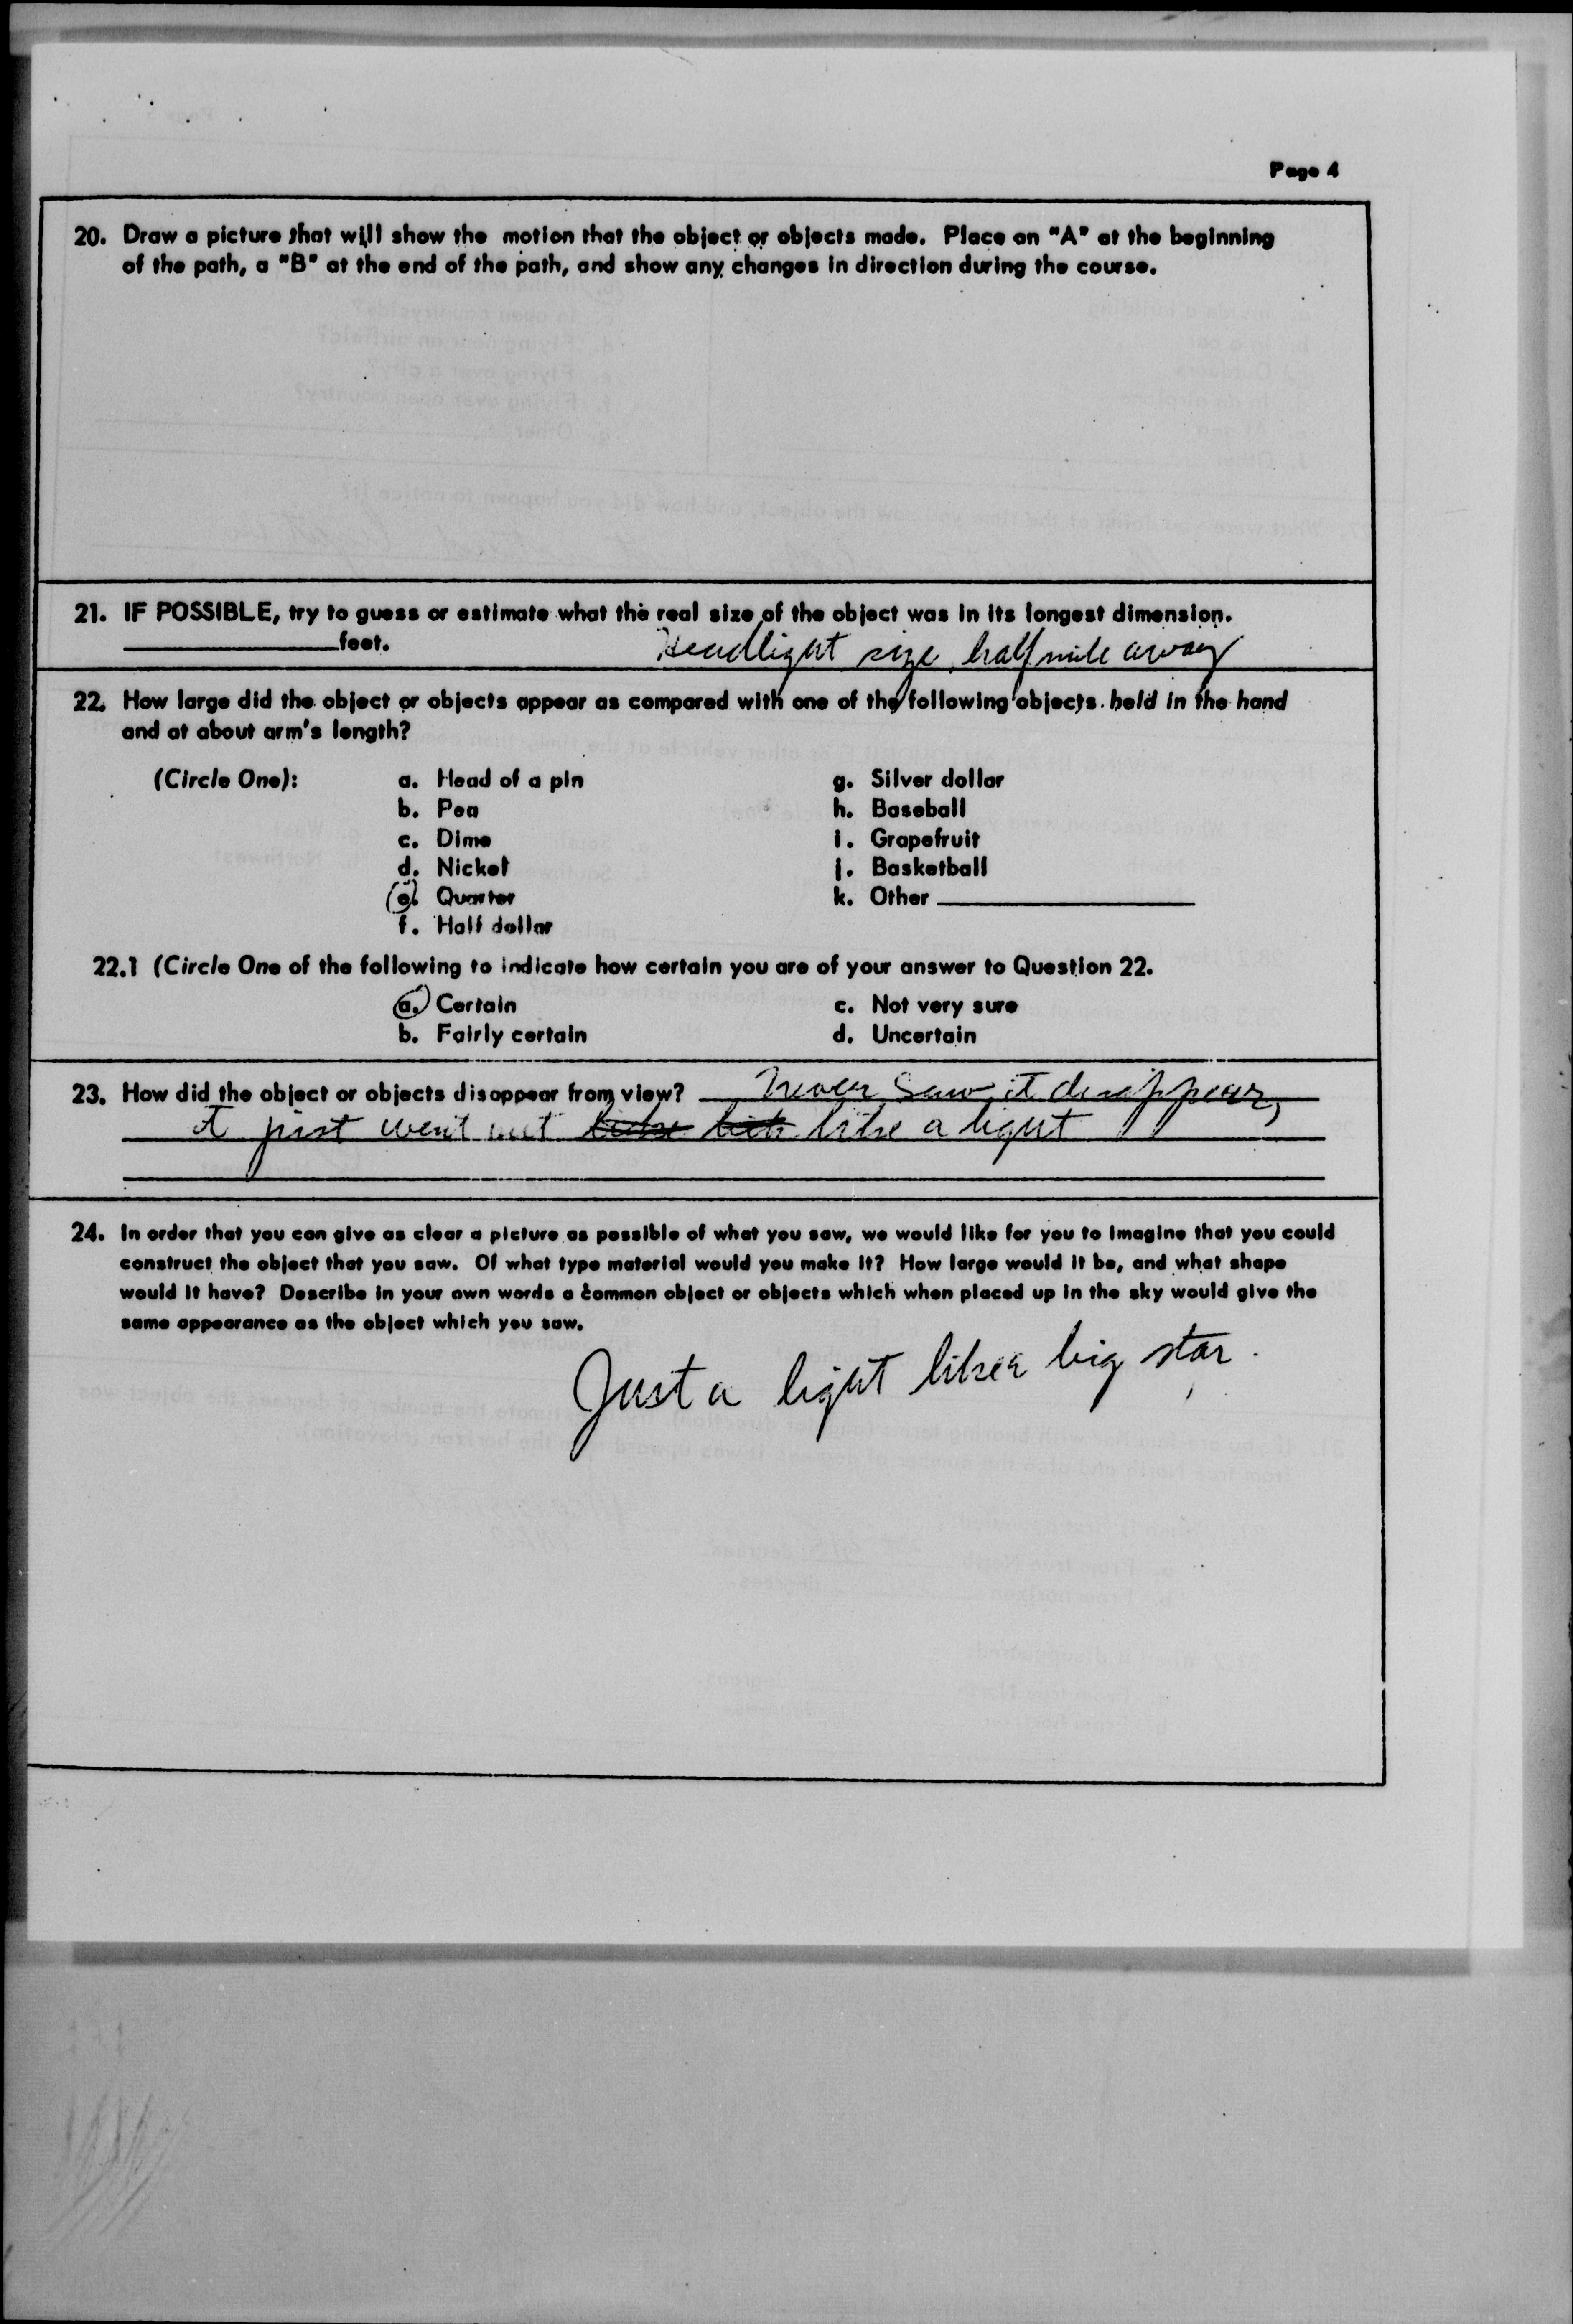 Page 4
20. Draw a picture that will show the motion that the object or objects made. Place an "A" at the beginning
of the path, a "B" at the end of the path, and show any changes in direction during the course.
21. IF POSSIBLE, try to guess or estimate what the real size of the object was in its longest dimension.
____________feet. Headlight size half mile away
22. How large did the object or objects appear as compared with one of the following objects held in the hand
and at about arm's length?
(Circle One): a. Head of a pin g. Silver dollar
b. Pea h. Baseball
c. Dime i. Grapefruit
d. Nickel j. Basketball
e. Quarter k. Other ____________
f. Half dollar
22.1 (Circle One of the following to indicate how certain you are of your answer to Question 22.
a. Certain c. Not very sure
b. Fairly certain d. Uncertain
23. How did the object or objects disappear from view? Never saw it disappear,
it just went out like a light
24. In order that you can give as clear a picture as possible of what you saw, we would like for you to imagine that you could
construct the object that you saw. Of what type material would you make it? How large would it be, and what shape
would it have? Describe in your own words a common object or objects which when placed up in the sky would give the
same appearance as the object which you saw.
Just a light like a big star.